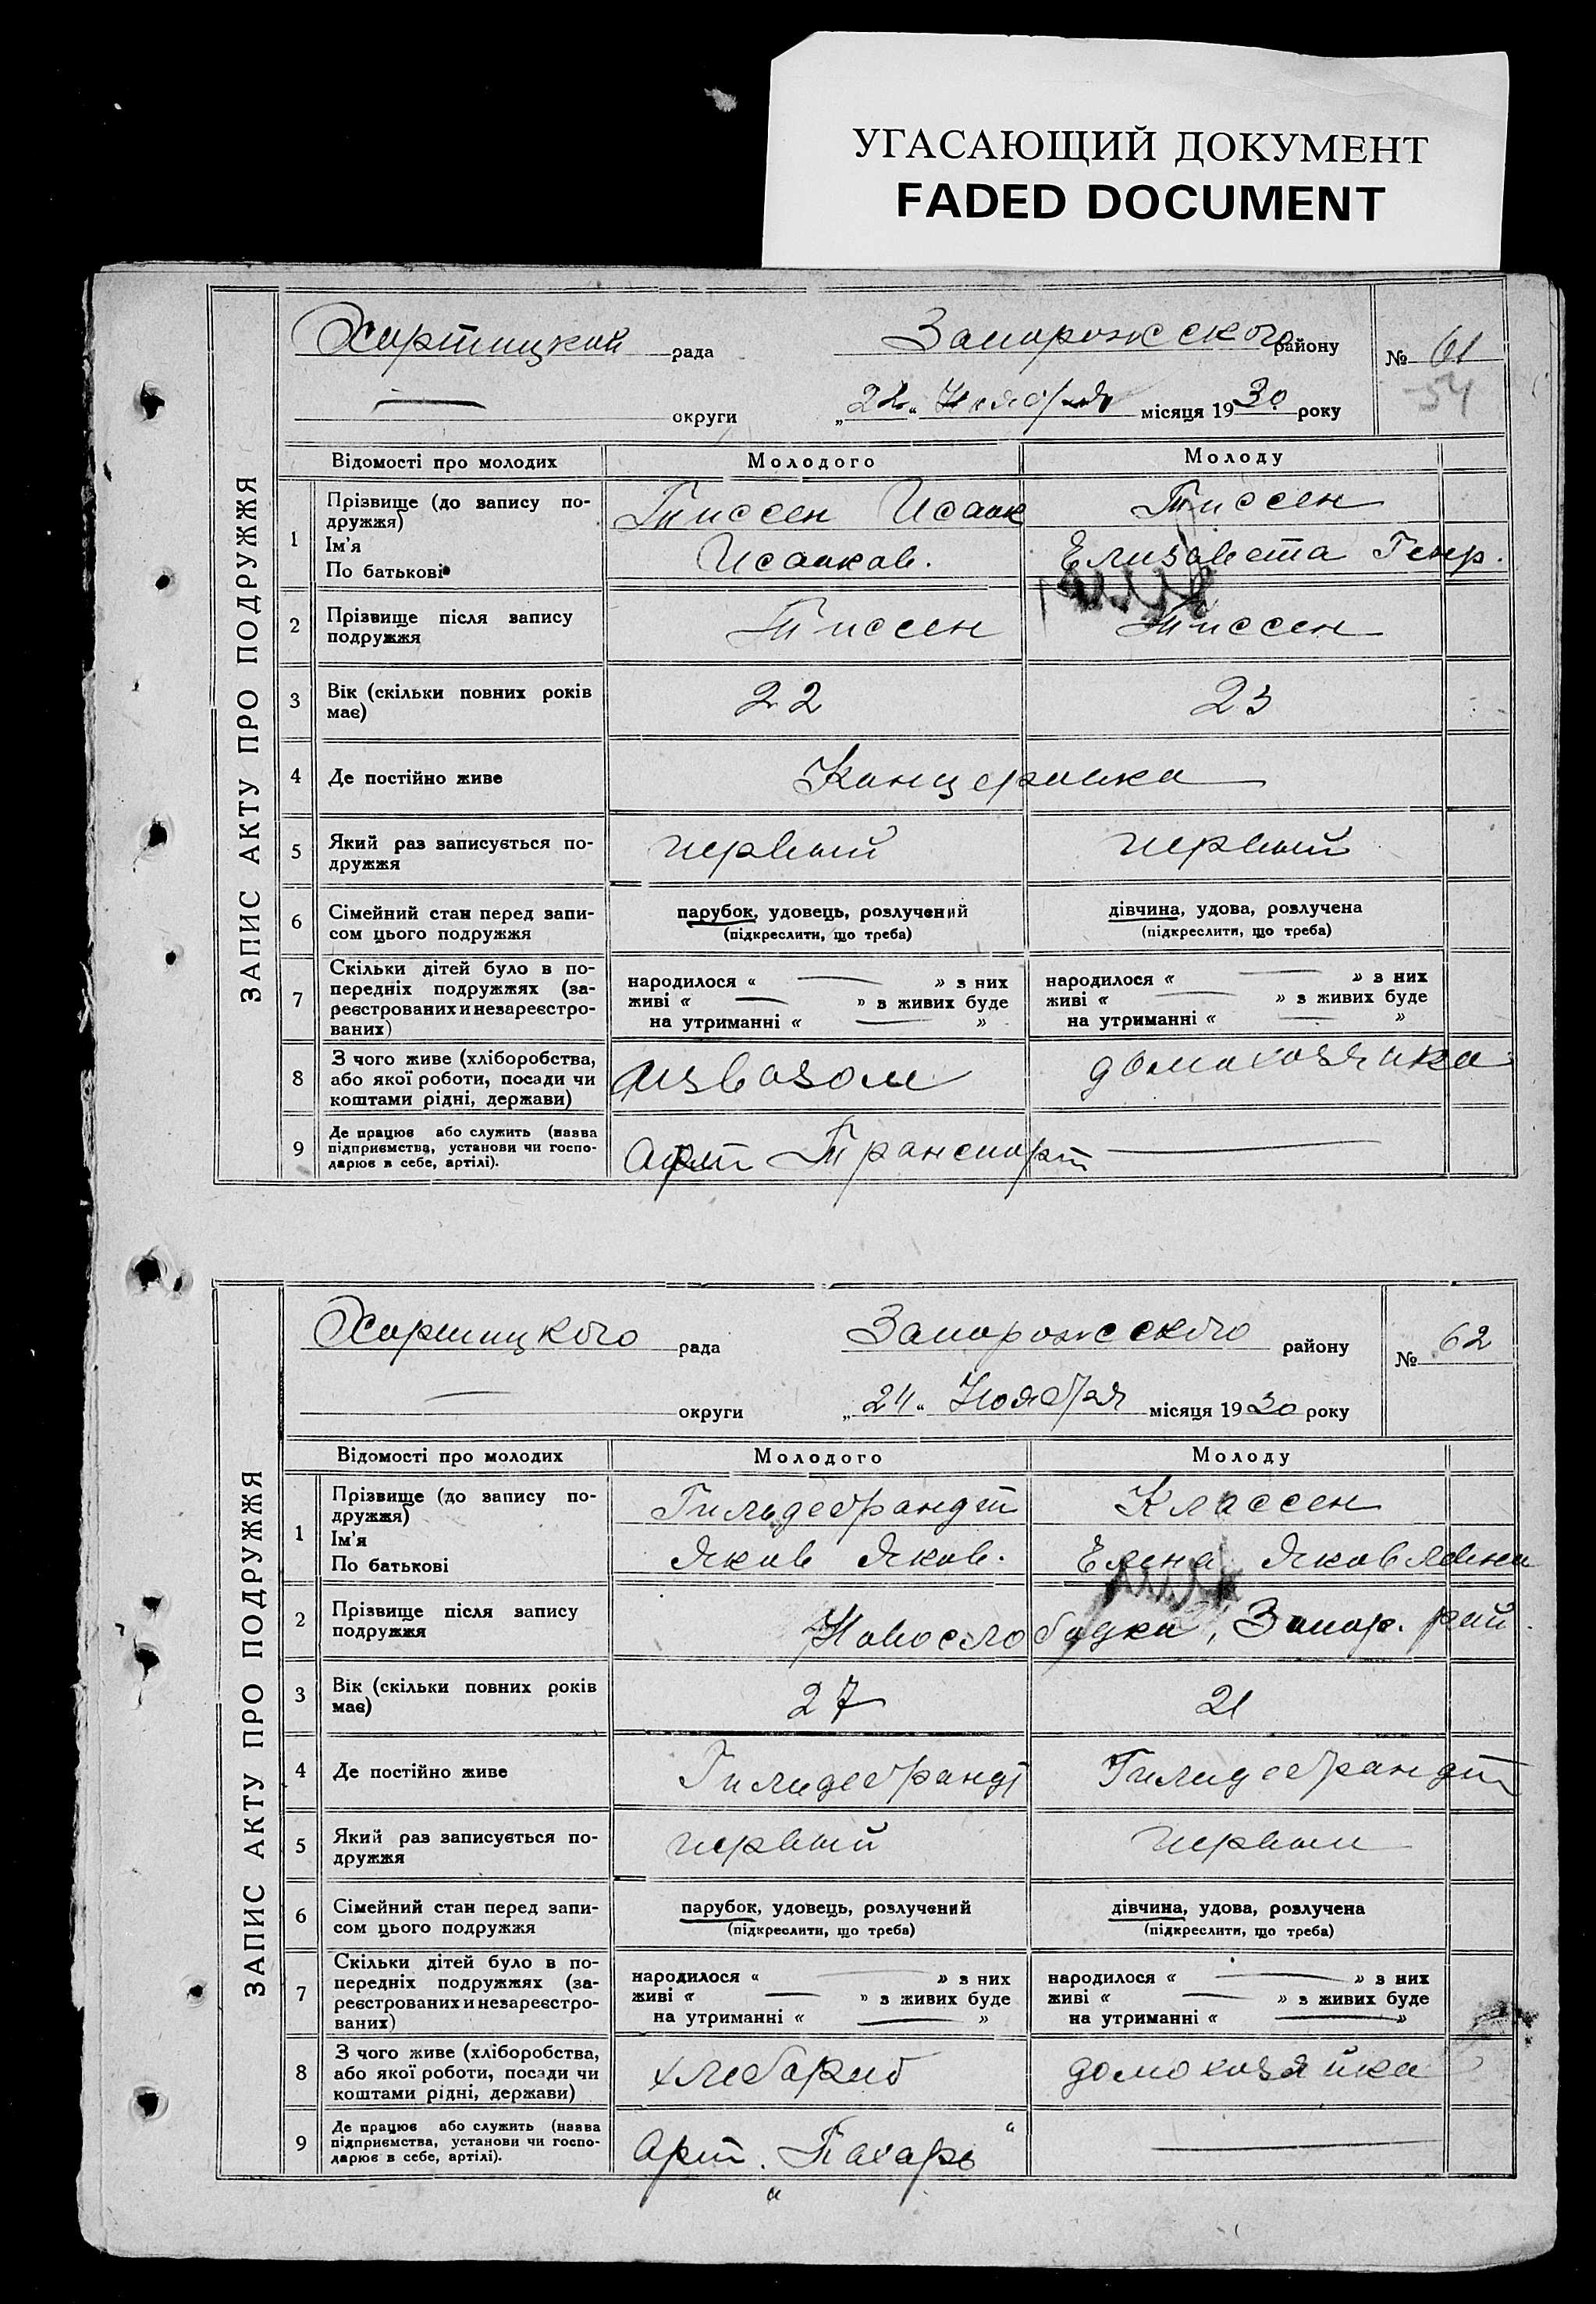 УГАСАЮЩИЙ ДОКУМЕНТ
FADED DOCUMENT
ЗАПИС АКТУ ПРО ПОДРУЖЖЯ
Хортицкой рада Запорожского району № 61
54
округи „22“ Ноября місяця 1930 року
Відомості про молодих Молодого Молоду
1 Прізвище (до запису по-
дружжя)
Ім'я
По батькові
Тиссен Исаак Тиссен
Исааков. Елизавета Генр.
2 Прізвище після запису
подружжя
Тиссен Тиссен
3 Вік (скільки повних років
має)
22 23
4 Де постійно живе Канцеровка
5 Який раз записується по-
дружжя
первый первый
6 Сімейний стан перед запи-
сом цього подружжя
парубок, удовець, розлучений
(підкреслити, що треба)
дівчина, удова, розлучена
(підкреслити, що треба)
7 Скільки дітей було в по-
передніх подружжях (за-
реєстрованих и незареєстро-
ваних)
народилося « — » з них
живі « — » з живих буде
на утриманні « — »
народилося « — » з них
живі « — » з живих буде
на утриманні « — »
8 З чого живе (хліборобства,
або якої роботи, посади чи
коштами рідні, держави)
извозом домохозяйка
9 Де працює або служить (назва
підприємства, установи чи госпо-
дарює в себе, артілі).
Арт Транспорт —
ЗАПИС АКТУ ПРО ПОДРУЖЖЯ
Хортицкого рада Запорожского району № 62
округи „24“ Ноября місяця 1930 року
Відомості про молодих Молодого Молоду
1 Прізвище (до запису по-
дружжя)
Ім'я
По батькові
Гильдебрандт Классен
Яков Яков. Елена Яковлевна
2 Прізвище після запису
подружжя
Новослободка, Запор. рай.
3 Вік (скільки повних років
має)
27 21
4 Де постійно живе Гильдебрандт Гильдебрандт
5 Який раз записується по-
дружжя
первый первый
6 Сімейний стан перед запи-
сом цього подружжя
парубок, удовець, розлучений
(підкреслити, що треба)
дівчина, удова, розлучена
(підкреслити, що треба)
7 Скільки дітей було в по-
передніх подружжях (за-
реєстрованих и незареєстро-
ваних)
народилося « — » з них
живі « — » з живих буде
на утриманні « — »
народилося « — » з них
живі « — » з живих буде
на утриманні « — »
8 З чого живе (хліборобства,
або якої роботи, посади чи
коштами рідні, держави)
хлебороб домохозяйка
9 Де працює або служить (назва
підприємства, установи чи госпо-
дарює в себе, артілі).
Арт. „Пахарь“ —